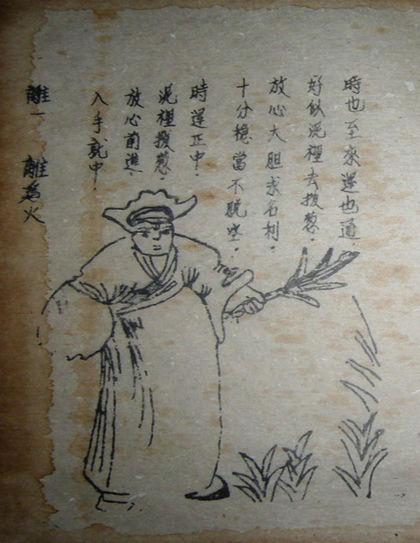 時也至來運也通
好似泥裡去拔葱.
放心大胆求名利.
十分穩當不脱空.
時運正中.
泥裡拔葱.
放心前進.
入手就中.
離一 離為火